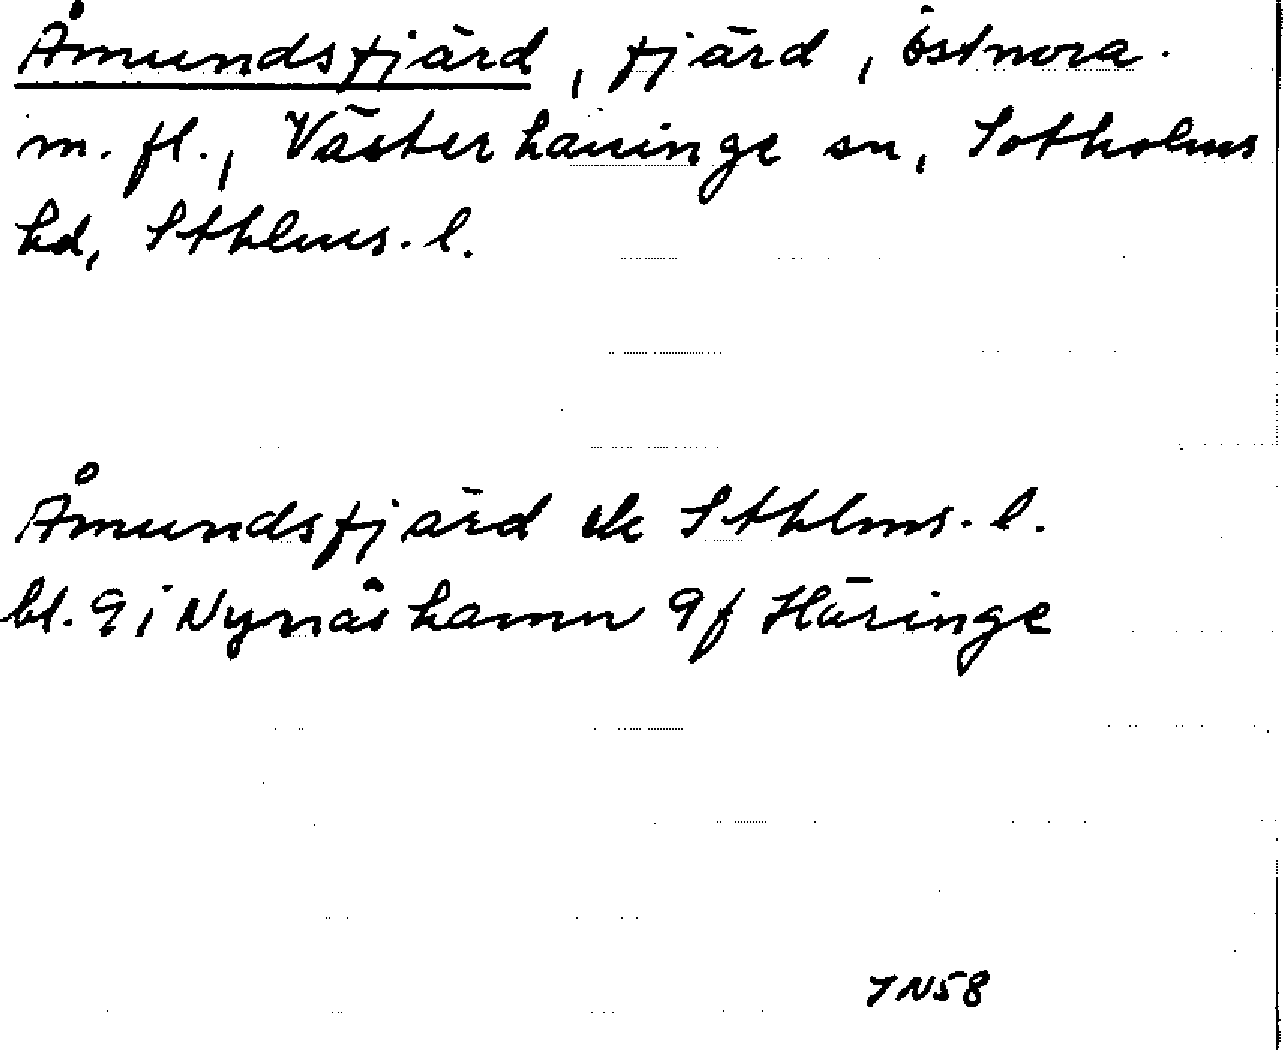 Åmundsfjärd, fjärd, Östnora
m. fl., Västerhaninge sn, Sotholms
hd, Sthlms. l.
Åmundsfjärd ek Sthlms. l.
bl. 9 i Nynäshamn 9f Häringe
7N58